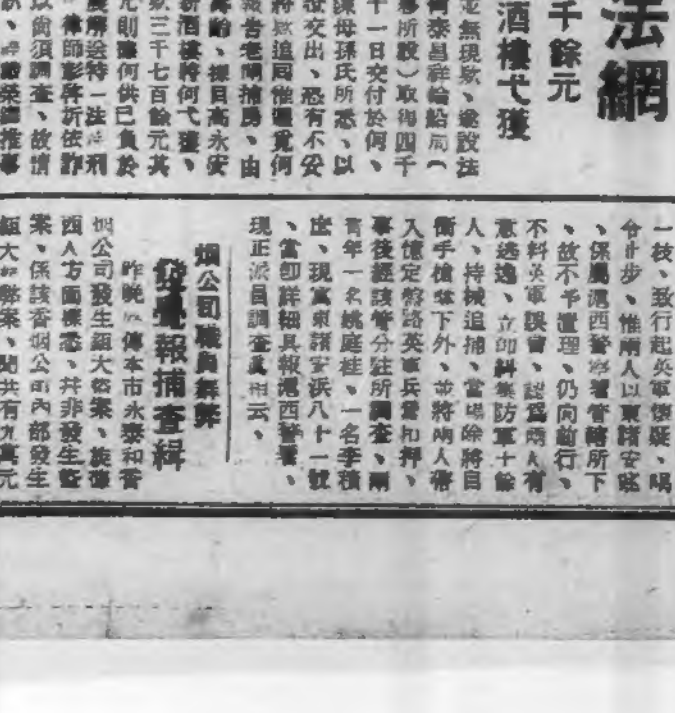 法網
千餘元
酒樓弋獲
並無現款、遂設法
泰昌祥輪船局（
設）取得四千
十一日交付於何、
陳母孫氏所悉、以
交出、恐有不妥
將款追回惟遍覓何
報告老閘捕房、由
探目高永安
新酒樓將何弋獲、
三千七百餘元其
則謙何供已負於
解送特一法
律師彭
以尚須調查、故情
一枝、致行起英軍懷疑、喝
令止步、惟兩人以東諸安浜
、係屬滬西警察署管轄所下
、故不予置理、仍向前行、
不料英軍誤會、認爲兩人有
意逃逸、立即糾集防軍十餘
人、持械追捕、當場除將自
衛手槍奪下外、並將兩人帶
入憶定盤路英軍兵營扣押、
事後經該管分駐所調查、兩
靑年一名姚庭桂、一名李積
、現寓東諸安浜八十一號
、當卽詳細具報滬西警署、
現正派員調查眞相云、
烟公司職員舞弊
發覺報捕查緝
昨晚 傳本市永泰和香
烟公司發生鉅大 案、旋
西人方面探悉、并非發生
案、係該香烟公司內部發生
鉅大舞弊案、聞共有九萬元